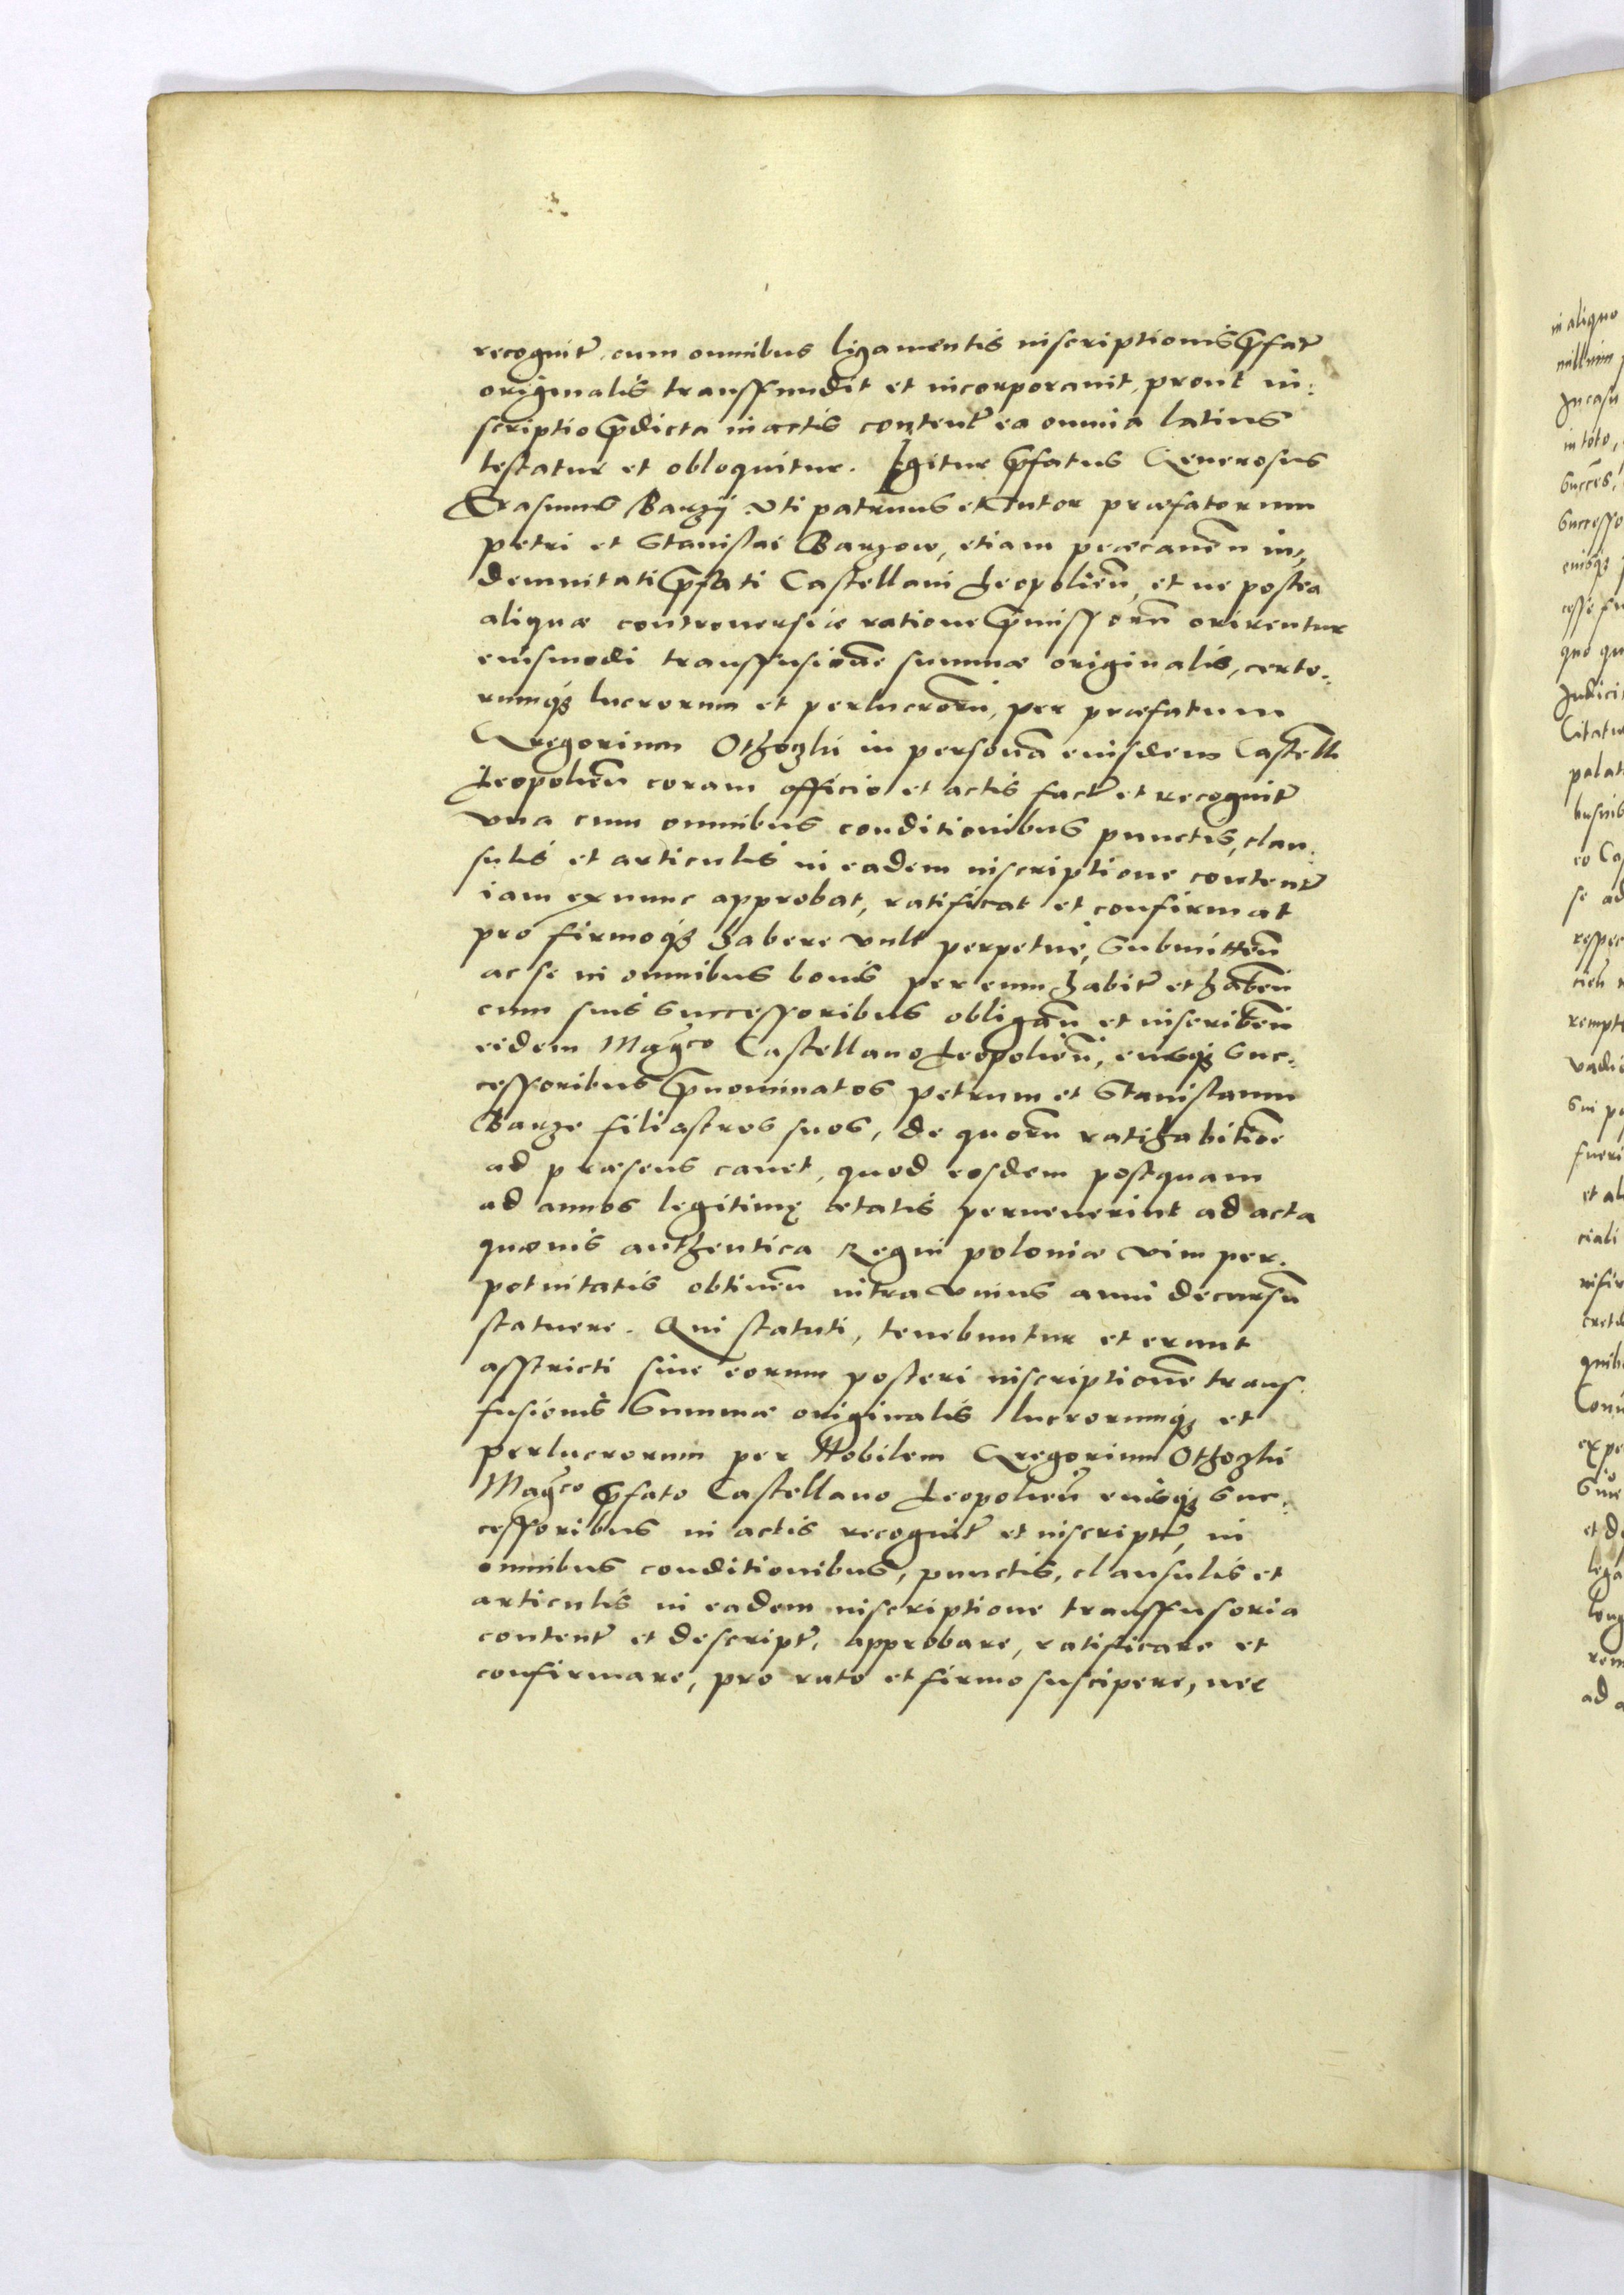 recognit̃ cum omnibus ligamentis inscriptionis p̃fat̃
originalis transffundit et incorporauit, prout in:
scriptio p̃dicta in actis content̃ ea omnia latius
testatur et obloquitur. Igitur p̃fatus Generosus
Erasmus Barzÿ vti patruus et Tutor præfatorum
Petri et Stanislai Barzow, etiam præcauen̄ in,
demnitati p̃fati Castellani Leopolien̄, et ne postea
aliquæ controuersiæ ratione p̃missorū orirentur
eiusmodi transffusionē summæ originalis, certo:
rumq̃ lucrorum et perlucrorū, per præfatum
Gregorium Othozkii in personā eiusdem Castell̄
Leopolien̄ coram officio et actis fact̃ et recognit̃
vna cum omnibus conditionibus punctis, clau:
sulis et articulis in eadem inscriptione content̃
iam ex nunc approbat, ratificat et confirmat
pro firmoq̃ habere vult perpetuè, Submitten̄
ac se in omnibus bonis per eum habit̃ et haben̄
cum suis Successoribus obligan̄ et inscriben̄
eidem Mag̃co Castellano Leopolien̄, eiusq̃ Suc:
cessoribus p̃nominatos Petrum et Stanislaum
Barze filiastros suos, de quorū ratihabitiōe
ad præsens cauet, quod eosdem postquam
ad annos legitimę ætatis peruenerint ad acta
quæuis authentica Regni Poloniæ vim per:
petuitatis obtinen̄ intra vnius anni decursū
statuere. Qui statuti, tenebuntur et erunt
asstricti siue eorum posteri inscriptionē trans:
fusionis Summæ originalis lucrorumq̃ et
perlucrorum per Nobilem Gregorium Othozkii
Mag̃co p̃fato Castellano Leopolien̄ eiusq̃ Suc:
cessoribus in actis recognit̃ et inscript̃, in
omnibus conditionibus, punctis, clausulis et
articulis in eadem inscriptione transffusoria
content̃ et descript̃, approbare, ratificare et
confirmare, pro rato et firmo suscipere, nec